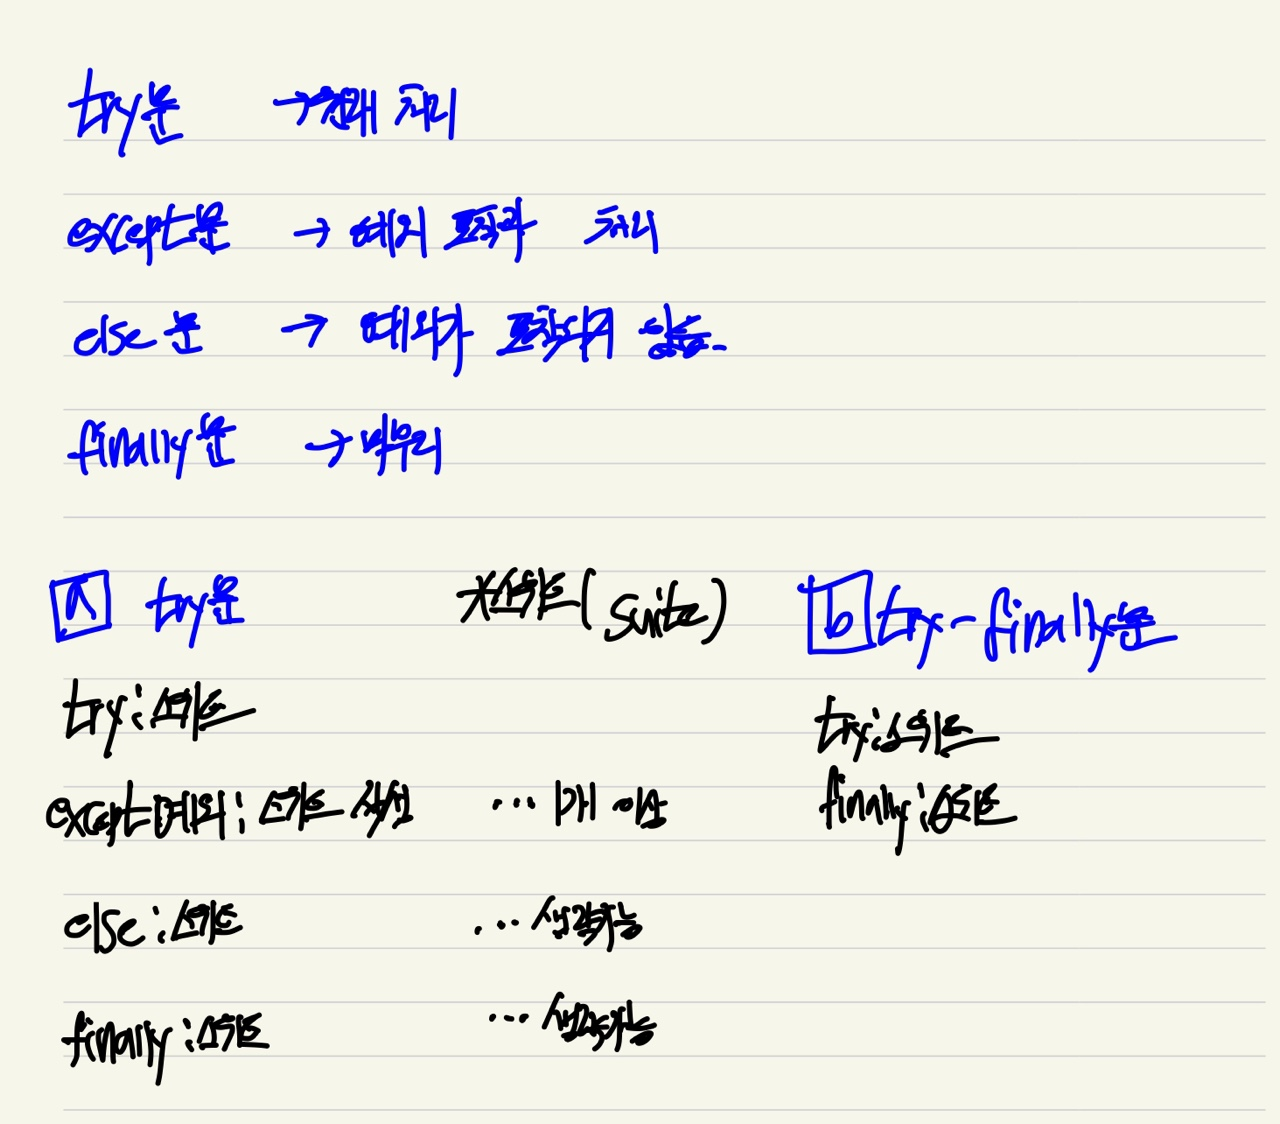 try문 → 원래 처리
except문 → 예외 포착과 처리
else문 → 예외가 포착되지 않음
finally문 → 마무리
a try문
*스위트(suite)
try:스위트
except예외:스위트 ... 1개 이상
else:스위트 ... 생략가능
finally:스위트 ... 생략가능
b try-finally문
try:스위트
finally:스위트